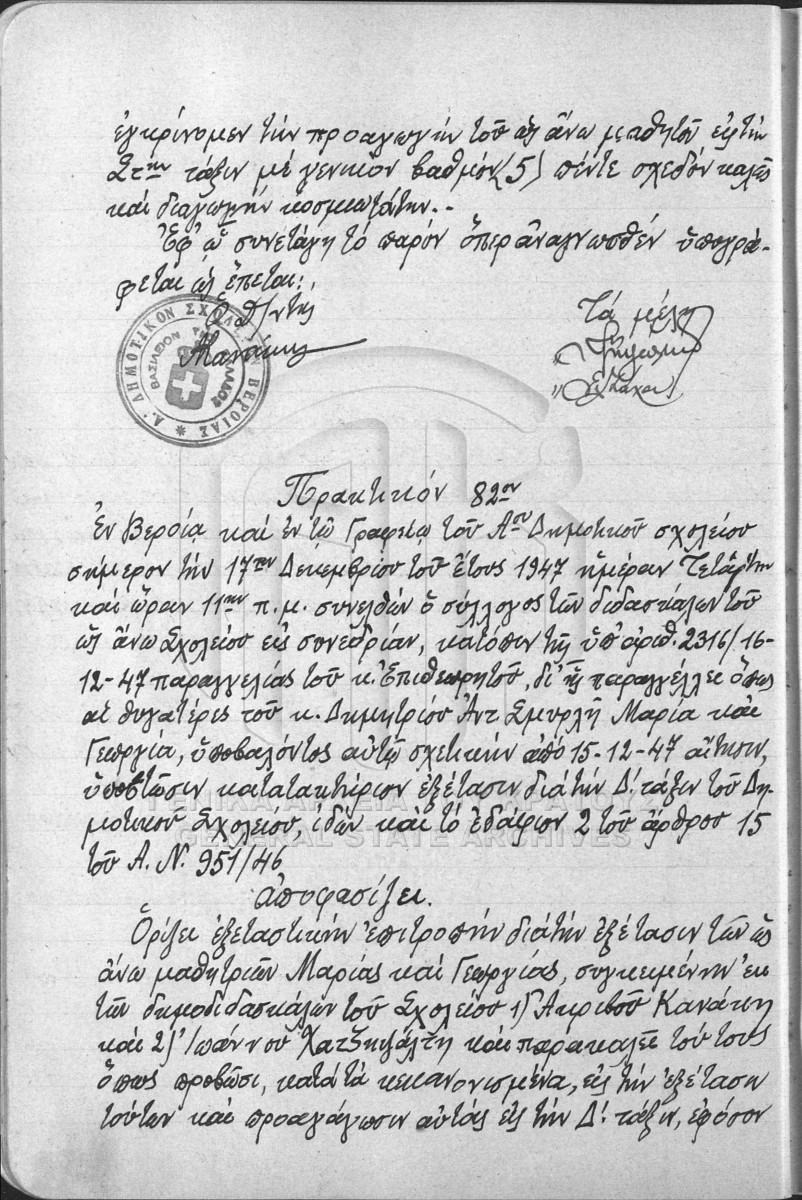 ἐγκρίνομεν τὴν προαγωγὴν τοῦ ὡς ἄνω μαθητοῦ εἰς τὴν
Στην τάξιν μὲ γενικὸν βαθμὸν (5) πέντε σχεδὸν καλῶς
καὶ διαγωγὴν κοσμιωτάτην.-
Ἐφ' ᾧ συνετάγη τὸ παρὸν ὅπερ ἀναγνωσθὲν ὑπογρά-
φεται ὡς ἕπεται:
Ὁ Δ/ντής
Τὰ μέλη
Α. ΔΗΜΟΤΙΚΟΝ ΣΧΟΛΕΙΟΝ ΒΕΡΟΙΑΣ
ΒΑΣΙΛΕΙΟΝ ΤΗΣ ΕΛΛΑΔΟΣ
Πρακτικόν 82ον
Ἐν Βεροίᾳ καὶ ἐν τῷ Γραφείῳ τοῦ Αου Δημοτικοῦ σχολείου
σήμερον τὴν 17ην Δεκεμβρίου τοῦ ἔτους 1947 ἡμέραν Τετάρτην
καὶ ὥραν 11ην π.μ. συνελθὼν ὁ σύλλογος τῶν διδασκάλων τοῦ
ὡς ἄνω Σχολείου εἰς συνεδρίαν, κατόπιν τῆς ὑπ' ἀριθ. 2316/16-
12-47 παραγγελίας τοῦ κ. Ἐπιθεωρητοῦ, δι' ἧς παραγγέλλει ὅπως
αἱ θυγατέρες τοῦ κ. Δημητρίου Ἀντ. Σμυρλῆ Μαρία καὶ
Γεωργία, ὑποβαλόντος αὐτῷ σχετικὴν ἀπὸ 15-12-47 αἴτησιν,
ὑποστῶσιν κατατακτήριον ἐξέτασιν διὰ τὴν Δ΄. τάξιν τοῦ Δη-
μοτικοῦ Σχολείου, ἰδὼν καὶ τὸ ἐδάφιον 2 τοῦ ἄρθρου 15
τοῦ Α.Ν. 951/46
ἀποφασίζει.
Ὁρίζει ἐξεταστικὴν ἐπιτροπὴν διὰ τὴν ἐξέτασιν τῶν ὡς
ἄνω μαθητριῶν Μαρίας καὶ Γεωργίας, συγκειμένην ἐκ
τῶν δημοδιδασκάλων τοῦ Σχολείου 1) Ἀκριβοῦ Κανάκη
καὶ 2) Ἰωάννου Χατζηψάλτη καὶ παρακαλεῖ τούτους
ὅπως προβῶσι, κατὰ τὰ κεκανονισμένα, εἰς τὴν ἐξέτασιν
τούτων καὶ προαγάγωσιν αὐτὰς εἰς τὴν Δ΄. τάξιν, ἐφόσον
ΓΕΝΙΚΑ ΑΡΧΕΙΑ ΤΟΥ ΚΡΑΤΟΥΣ
GENERAL STATE ARCHIVES